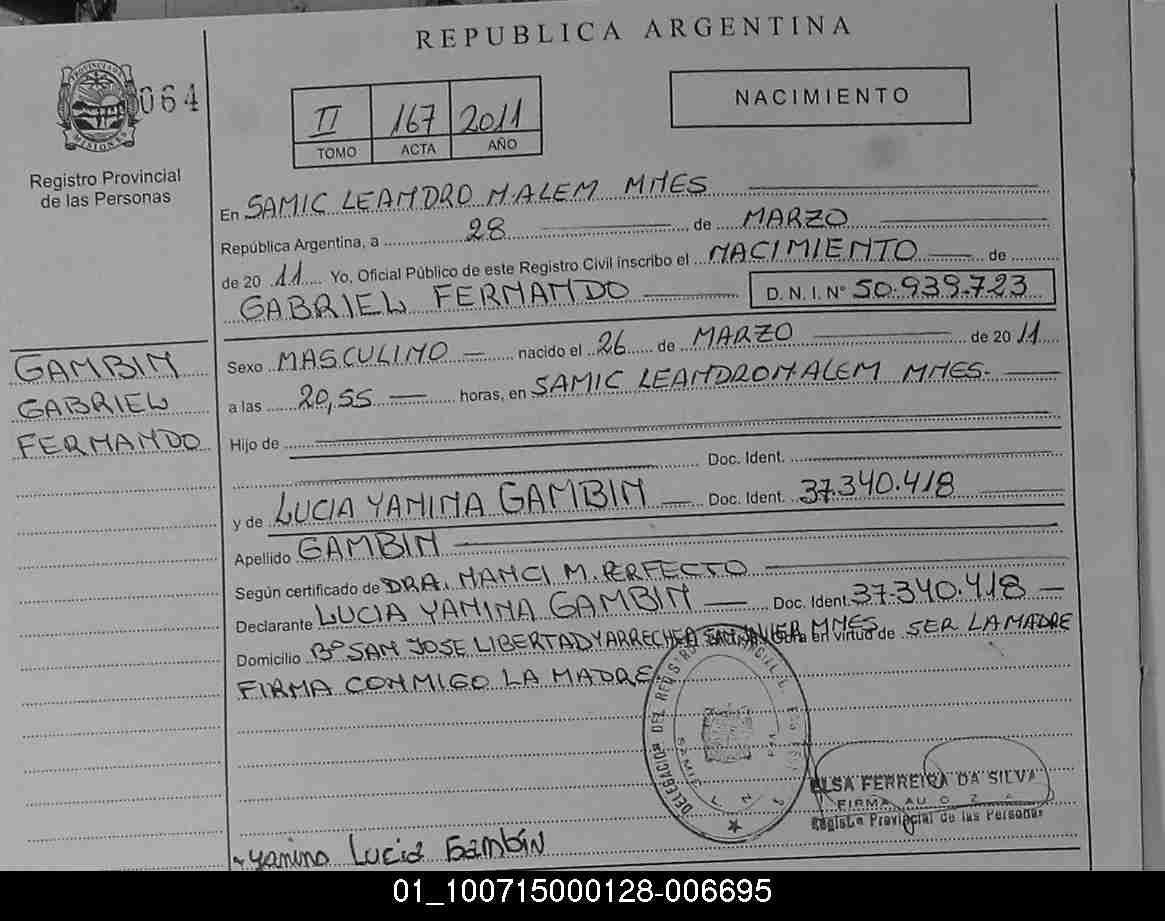 REPUBLICA ARGENTINA
PROVINCIA DE MISIONES
064
Registro Provincial
de las Personas
II 167 2011
TOMO ACTA AÑO
NACIMIENTO
En SAMIC LEANDRO N ALEM MNES
República Argentina, a 28 de MARZO
de 20 11 Yo, Oficial Público de este Registro Civil inscribo el NACIMIENTO de
GABRIEL FERNANDO D. N. I. Nº 50.939.723
GAMBIN
GABRIEL
FERNANDO
Sexo MASCULINO nacido el 26 de MARZO de 20 11
a las 20,55 horas, en SAMIC LEANDRO N ALEM MNES.
Hijo de
Doc. Ident.
y de LUCIA YANINA GAMBIN Doc. Ident. 37.340.418
Apellido GAMBIN
Según certificado de DRA. NANCI M. PERFECTO
Declarante LUCIA YANINA GAMBIN Doc. Ident. 37.340.418
Domicilio Bº SAN JOSE LIBERTAD Y ARRECHEA SAN JAVIER MNES en virtud de SER LA MADRE
FIRMA CONMIGO LA MADRE
DELEGACION DEL REGISTRO
ELSA FERREIRA DA SILVA
FIRMA AU
Registro Provincial de las Personas
Yanina Lucia Gambín
01_100715000128-006695